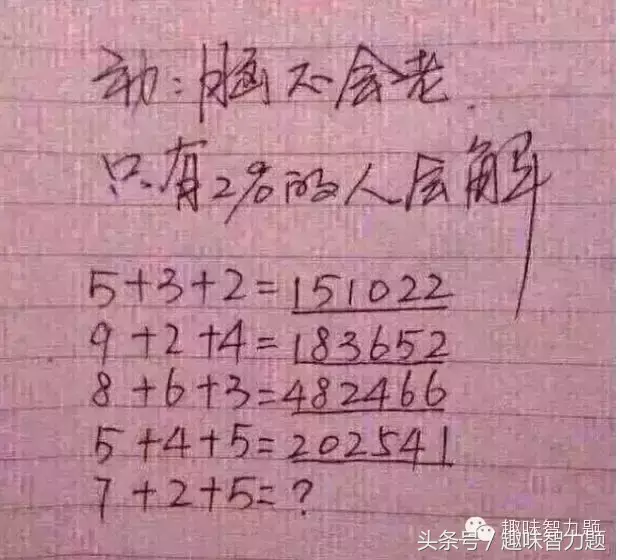 动:脑不会老.
只有2%的人会解
5+3+2=151022
9+2+4=183652
8+6+3=482466
5+4+5=202541
7+2+5=?
趣味智力题
头条号/趣味智力题